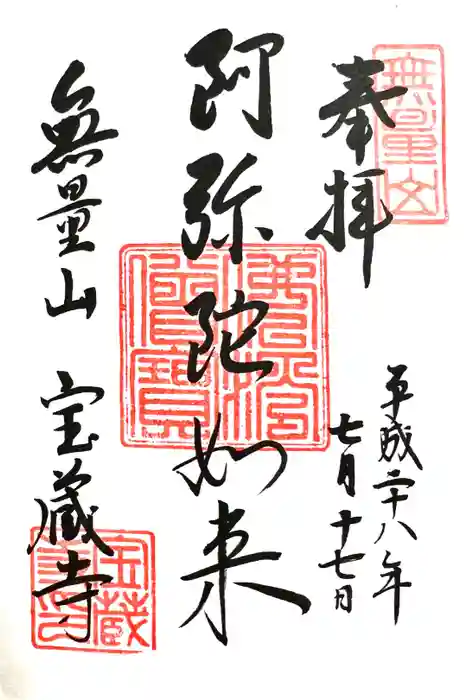 無量山
奉拝
平成二十八年
七月十七日
阿弥陀如来
佛法僧寳
無量山 宝蔵寺